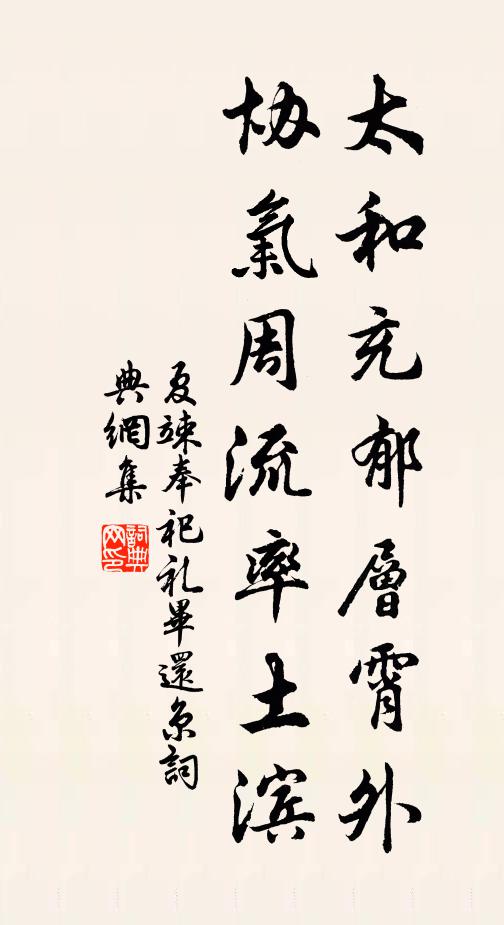 太和充郁層霄外
协氣周流率土滨
夏竦奉祀礼畢還京詞
典網集
詞典网印